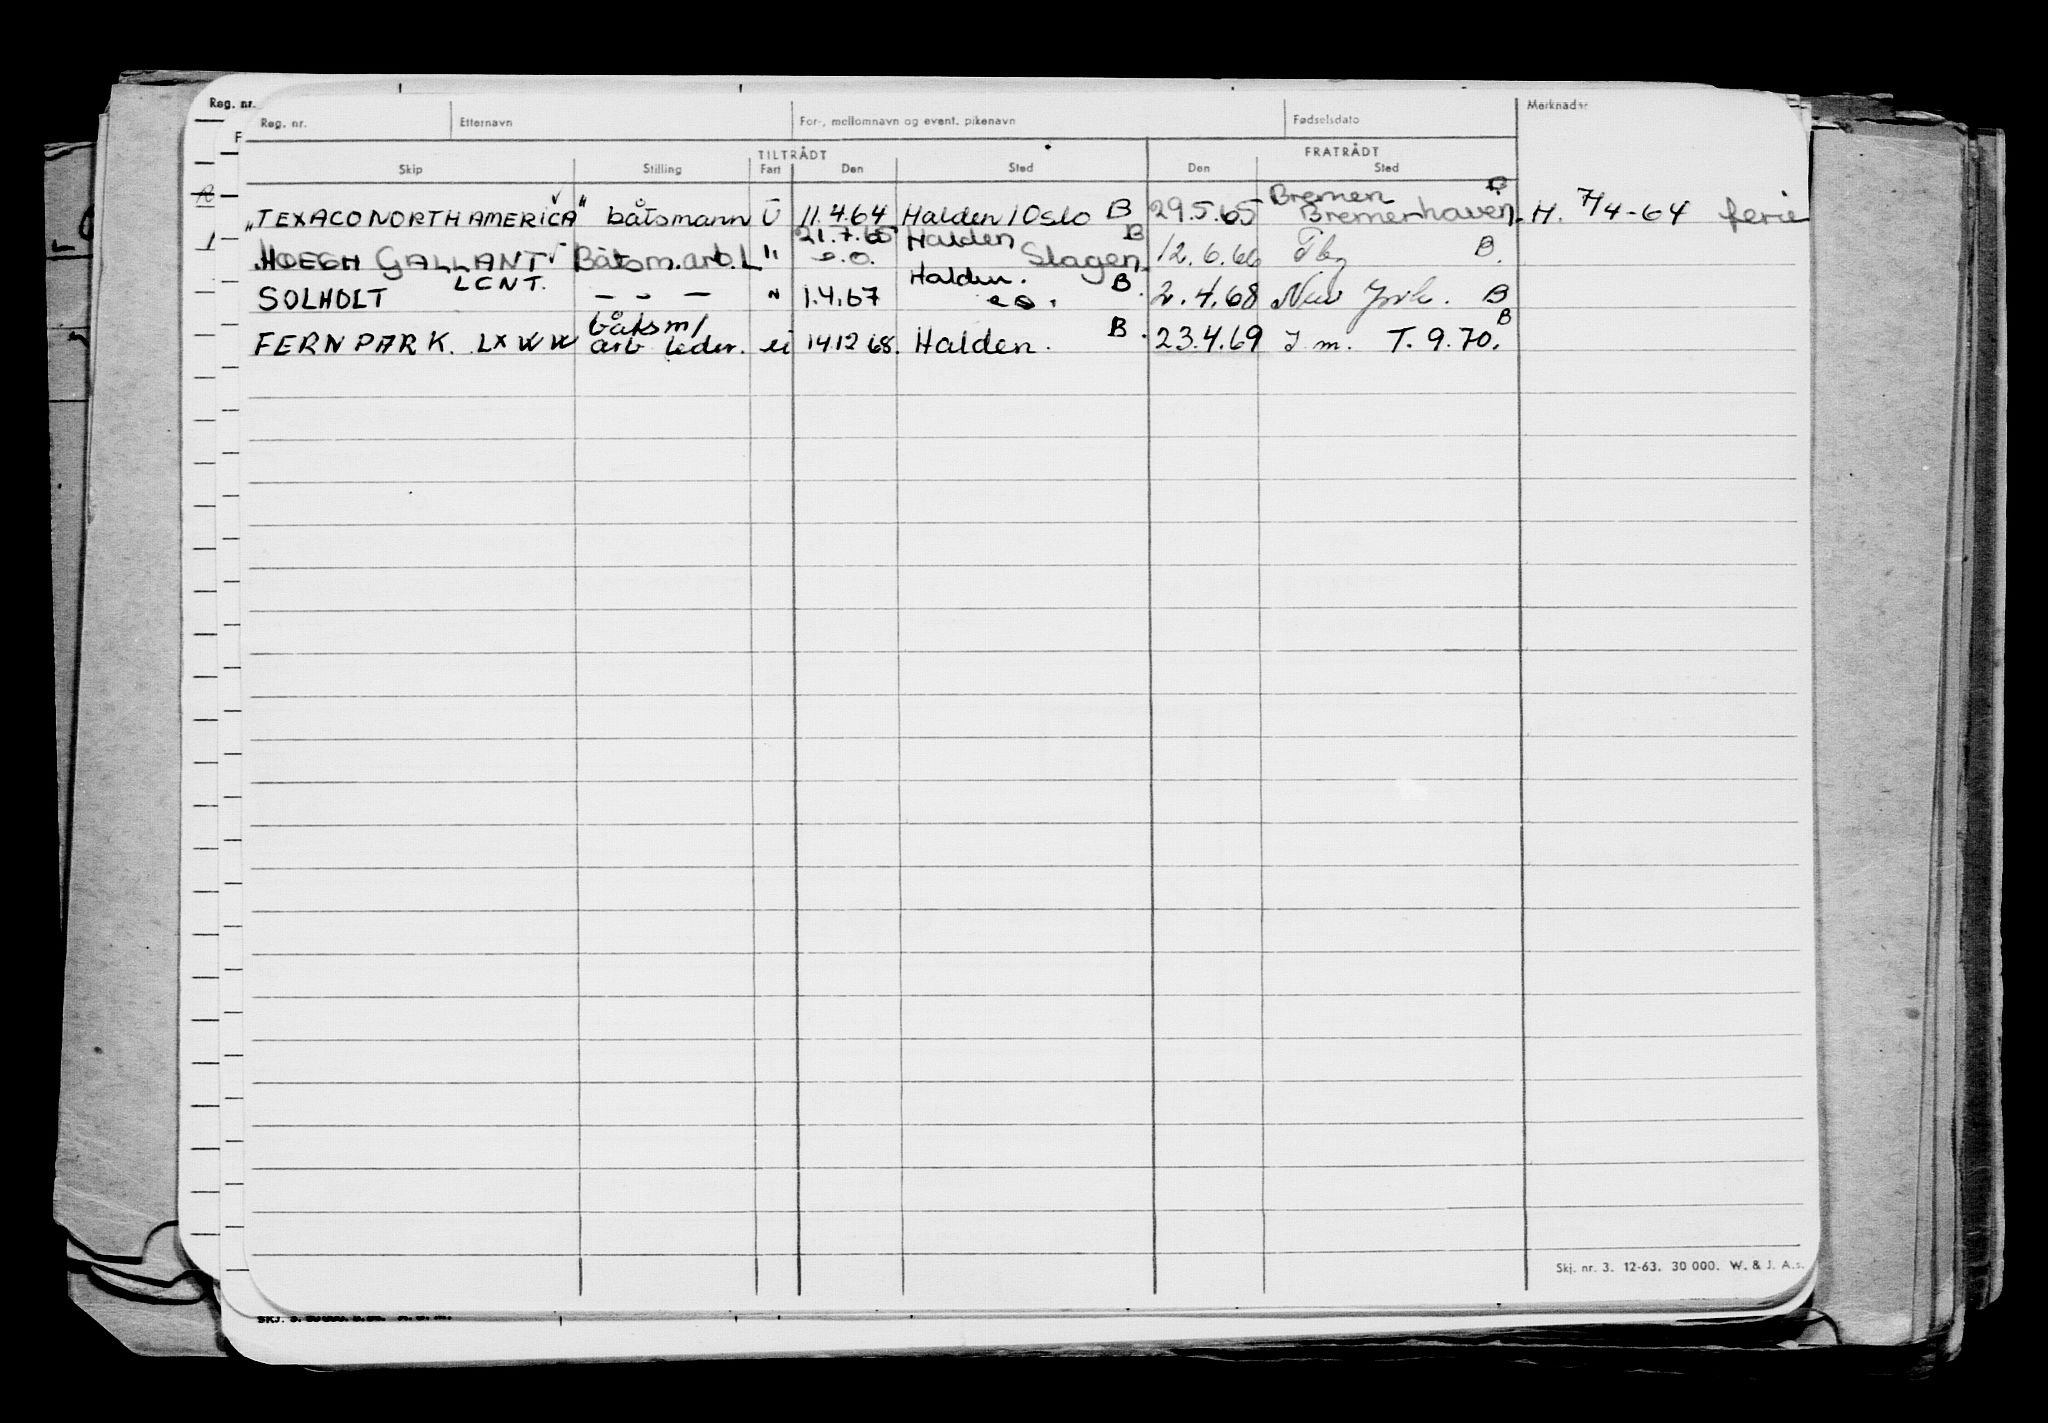 Reg. nr.
Reg. nr. Etternavn For-, mellomnavn og event. pikenavn Fødselsdato Merknader
F
TILTRÅDT FRATRÅDT
Skip Stilling Fart Den Sted Den Sted
Bremen B
"TEXACO NORTH AMERICA" båtsmann U 11.4.64 Halden/Oslo B 29.5.65 Bremerhaven. H. 7/4-64 ferie
21.7.65 Halden B
HOEGH GALLANT Båtsm.arb.L " e.o. Slagen 12.6.66 Tbg B.
LCNT. Halden. B.
SOLHOLT — - — " 1.4.67 e o. 2.4.68 New York. B
båtsm/ B
FERNPARK. LXWW arb leder. u 14.12 68. Halden. B. 23.4.69 I m. T. 9.70.
Skj. nr. 3. 12-63. 30 000. W. & J. A.s.